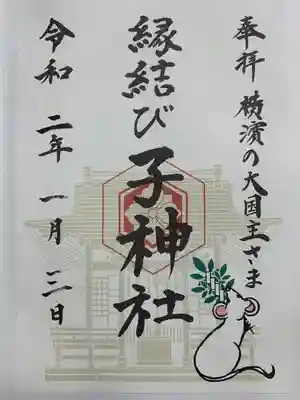 奉拝 横濱の大国主さま
縁結び子神社
令和二年一月三日